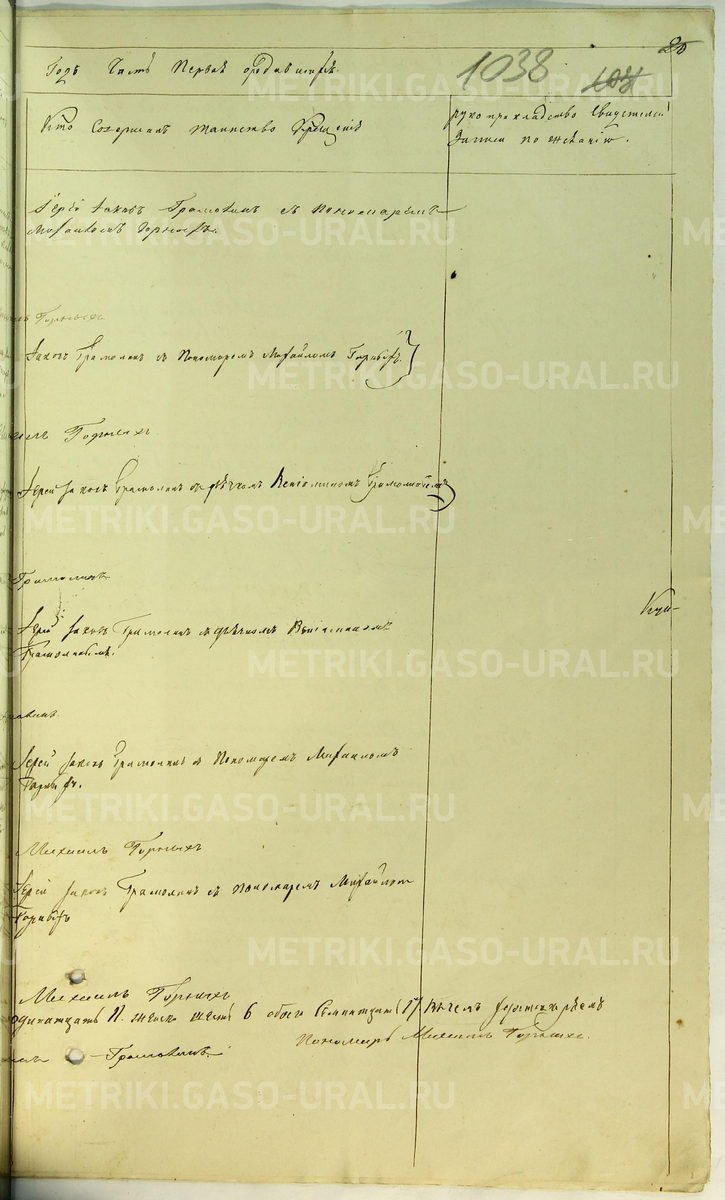 25
Годъ Часть Первая о родившихся.
1038
104
Кто Совершалъ таинство Крещенія
рукоприкладство Свидетелей
Записи по желанію.
Іерей Іаковъ Грамолинъ съ Пономаремъ
Михаиломъ Горныхъ.
Горныхъ
Іаковъ Грамолинъ съ Пономаремъ Михайломъ Горныхъ
Горныхъ
Іерей Іаковъ Грамолинъ съ дьячкомъ Веніаминомъ Грамолинымъ
Грамолинъ
Іерей Іаковъ Грамолинъ съ дьячкомъ Веніаминомъ
Грамолинымъ.
Іерей Іаковъ Грамолинъ съ Пономаремъ Михаиломъ
Горныхъ.
Михаилъ Горныхъ
Іерей Іаковъ Грамолинъ съ Пономаремъ Михайломъ
Горныхъ
Михаилъ Горныхъ
женска шесть 6 обоего Семнатцать 17
Пономарь Михаилъ Горныхъ.
Грамолинъ.
METRIKI.GASO-URAL.RU